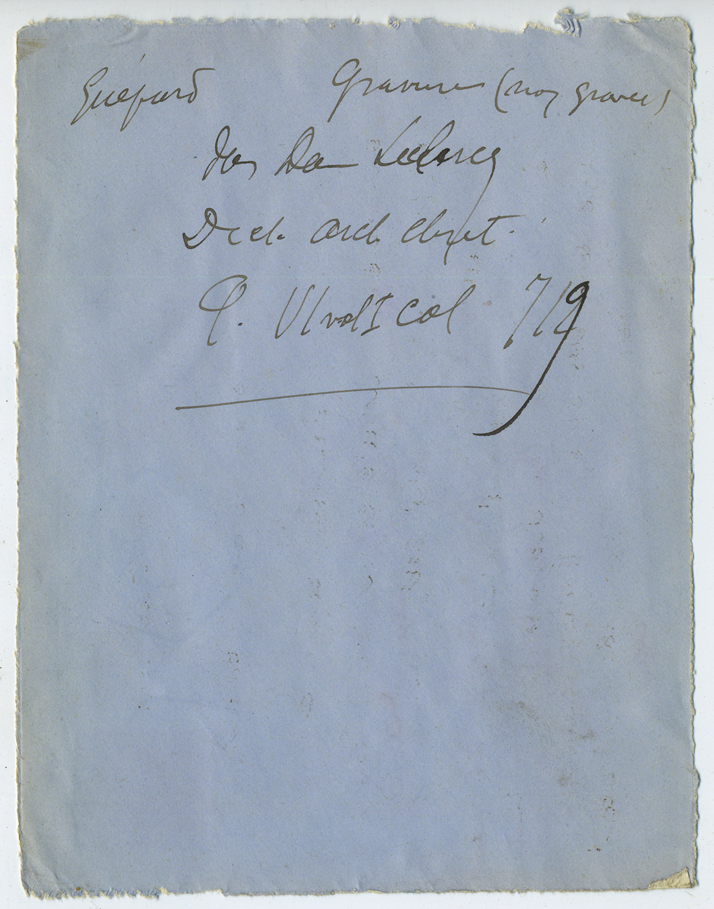 Guépard Gravure (non gravée)
dans Dom Leclercq
Dict. arch. chret.
T. VI vol I col 719